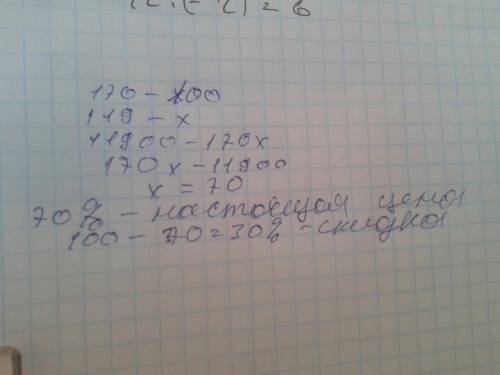 12 : (- 2) = 6
170 - 100
119 - x
11900 - 170x
170x - 11900
x = 70
70% - настоящая цена
100 - 70 = 30% - скидка